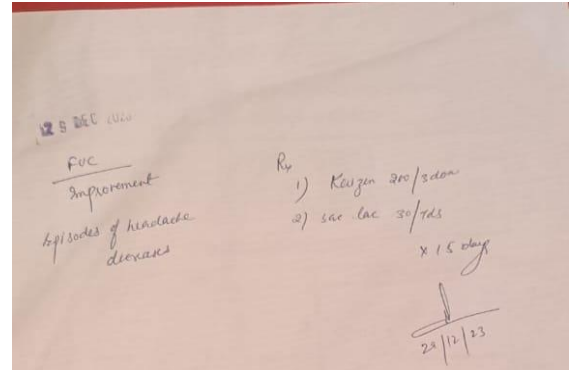 DEC
FUC
Improvement
Episodes of headache
decreases
Rx
1) 200/3dose
2) sac lac 30/tds
x 15 days
/12/23